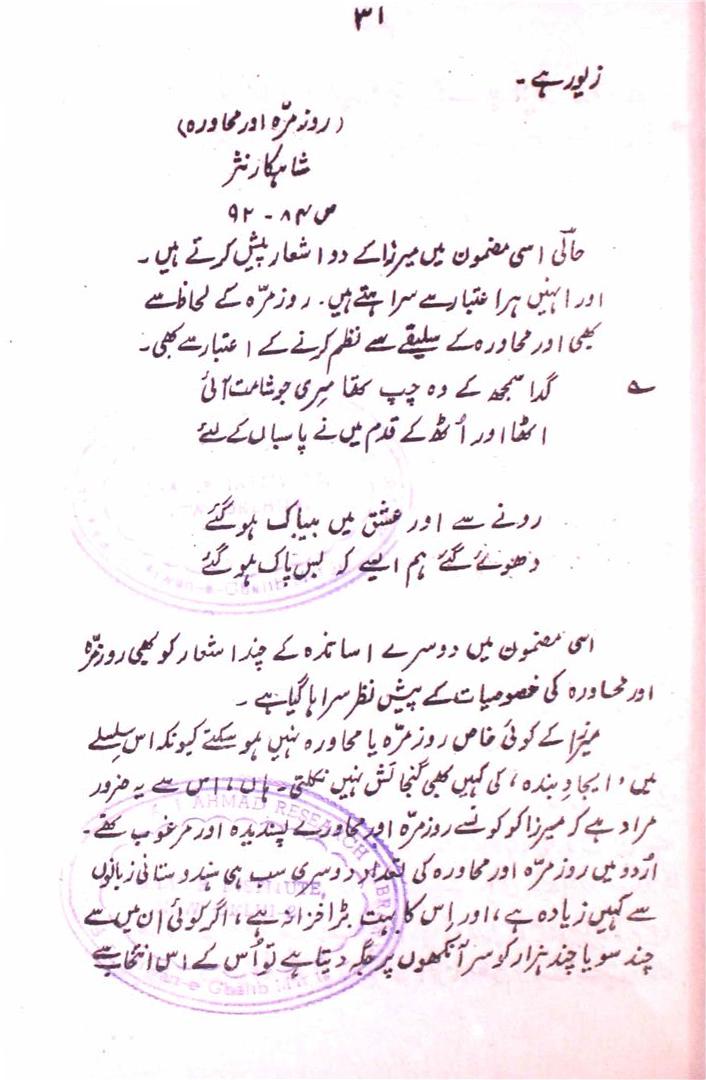 ۳۱
زیور ہے۔
(روزمرّہ اور محاورہ)
شاہکار نثر
ص ۸۴ - ۹۲
حالیؔ اسی مضمون میں میرزا کے دو اشعار پیش کرتے ہیں۔
اور انہیں ہر اعتبار سے سراہتے ہیں۔ روزمرّہ کے لحاظ سے
بھی اور محاورہ کے سلیقے سے نظم کرنے کے اعتبار سے بھی۔
گدا سمجھ کے وہ چپ تھا مری جو شامت آئی
اٹھا اور اُٹھ کے قدم میں نے پاسباں کے لئے
رونے سے اور عشق میں بیباک ہو گئے
دھوئے گئے ہم ایسے کہ بس پاک ہو گئے
اسی مضمون میں دوسرے اساتذہ کے چند اشعار کو بھی روزمرّہ
اور محاورہ کی خصوصیات کے پیش نظر سراہا گیا ہے۔
میرزا کے کوئی خاص روزمرّہ یا محاورہ نہیں ہو سکتے کیونکہ اس سلسلے
میں ’ایجادِ بندہ‘ کی کہیں بھی گنجائش نہیں نکلتی۔ ہاں، اس سے یہ ضرور
مراد ہے کہ میرزا کو کونسے روزمرّہ اور محاورے پسندیدہ اور مرغوب تھے۔
اُردو میں روزمرّہ اور محاورہ کی تعداد دوسری سب ہی ہندوستانی زبانوں
سے کہیں زیادہ ہے، اور اِس کا بہت بڑا خزانہ ہے، اگر کوئی اِن میں سے
چند سو یا چند ہزار کو سر آنکھوں پر جگہ دیتا ہے تو اُس کے اس انتخاب سے
AHMAD RESEARCH